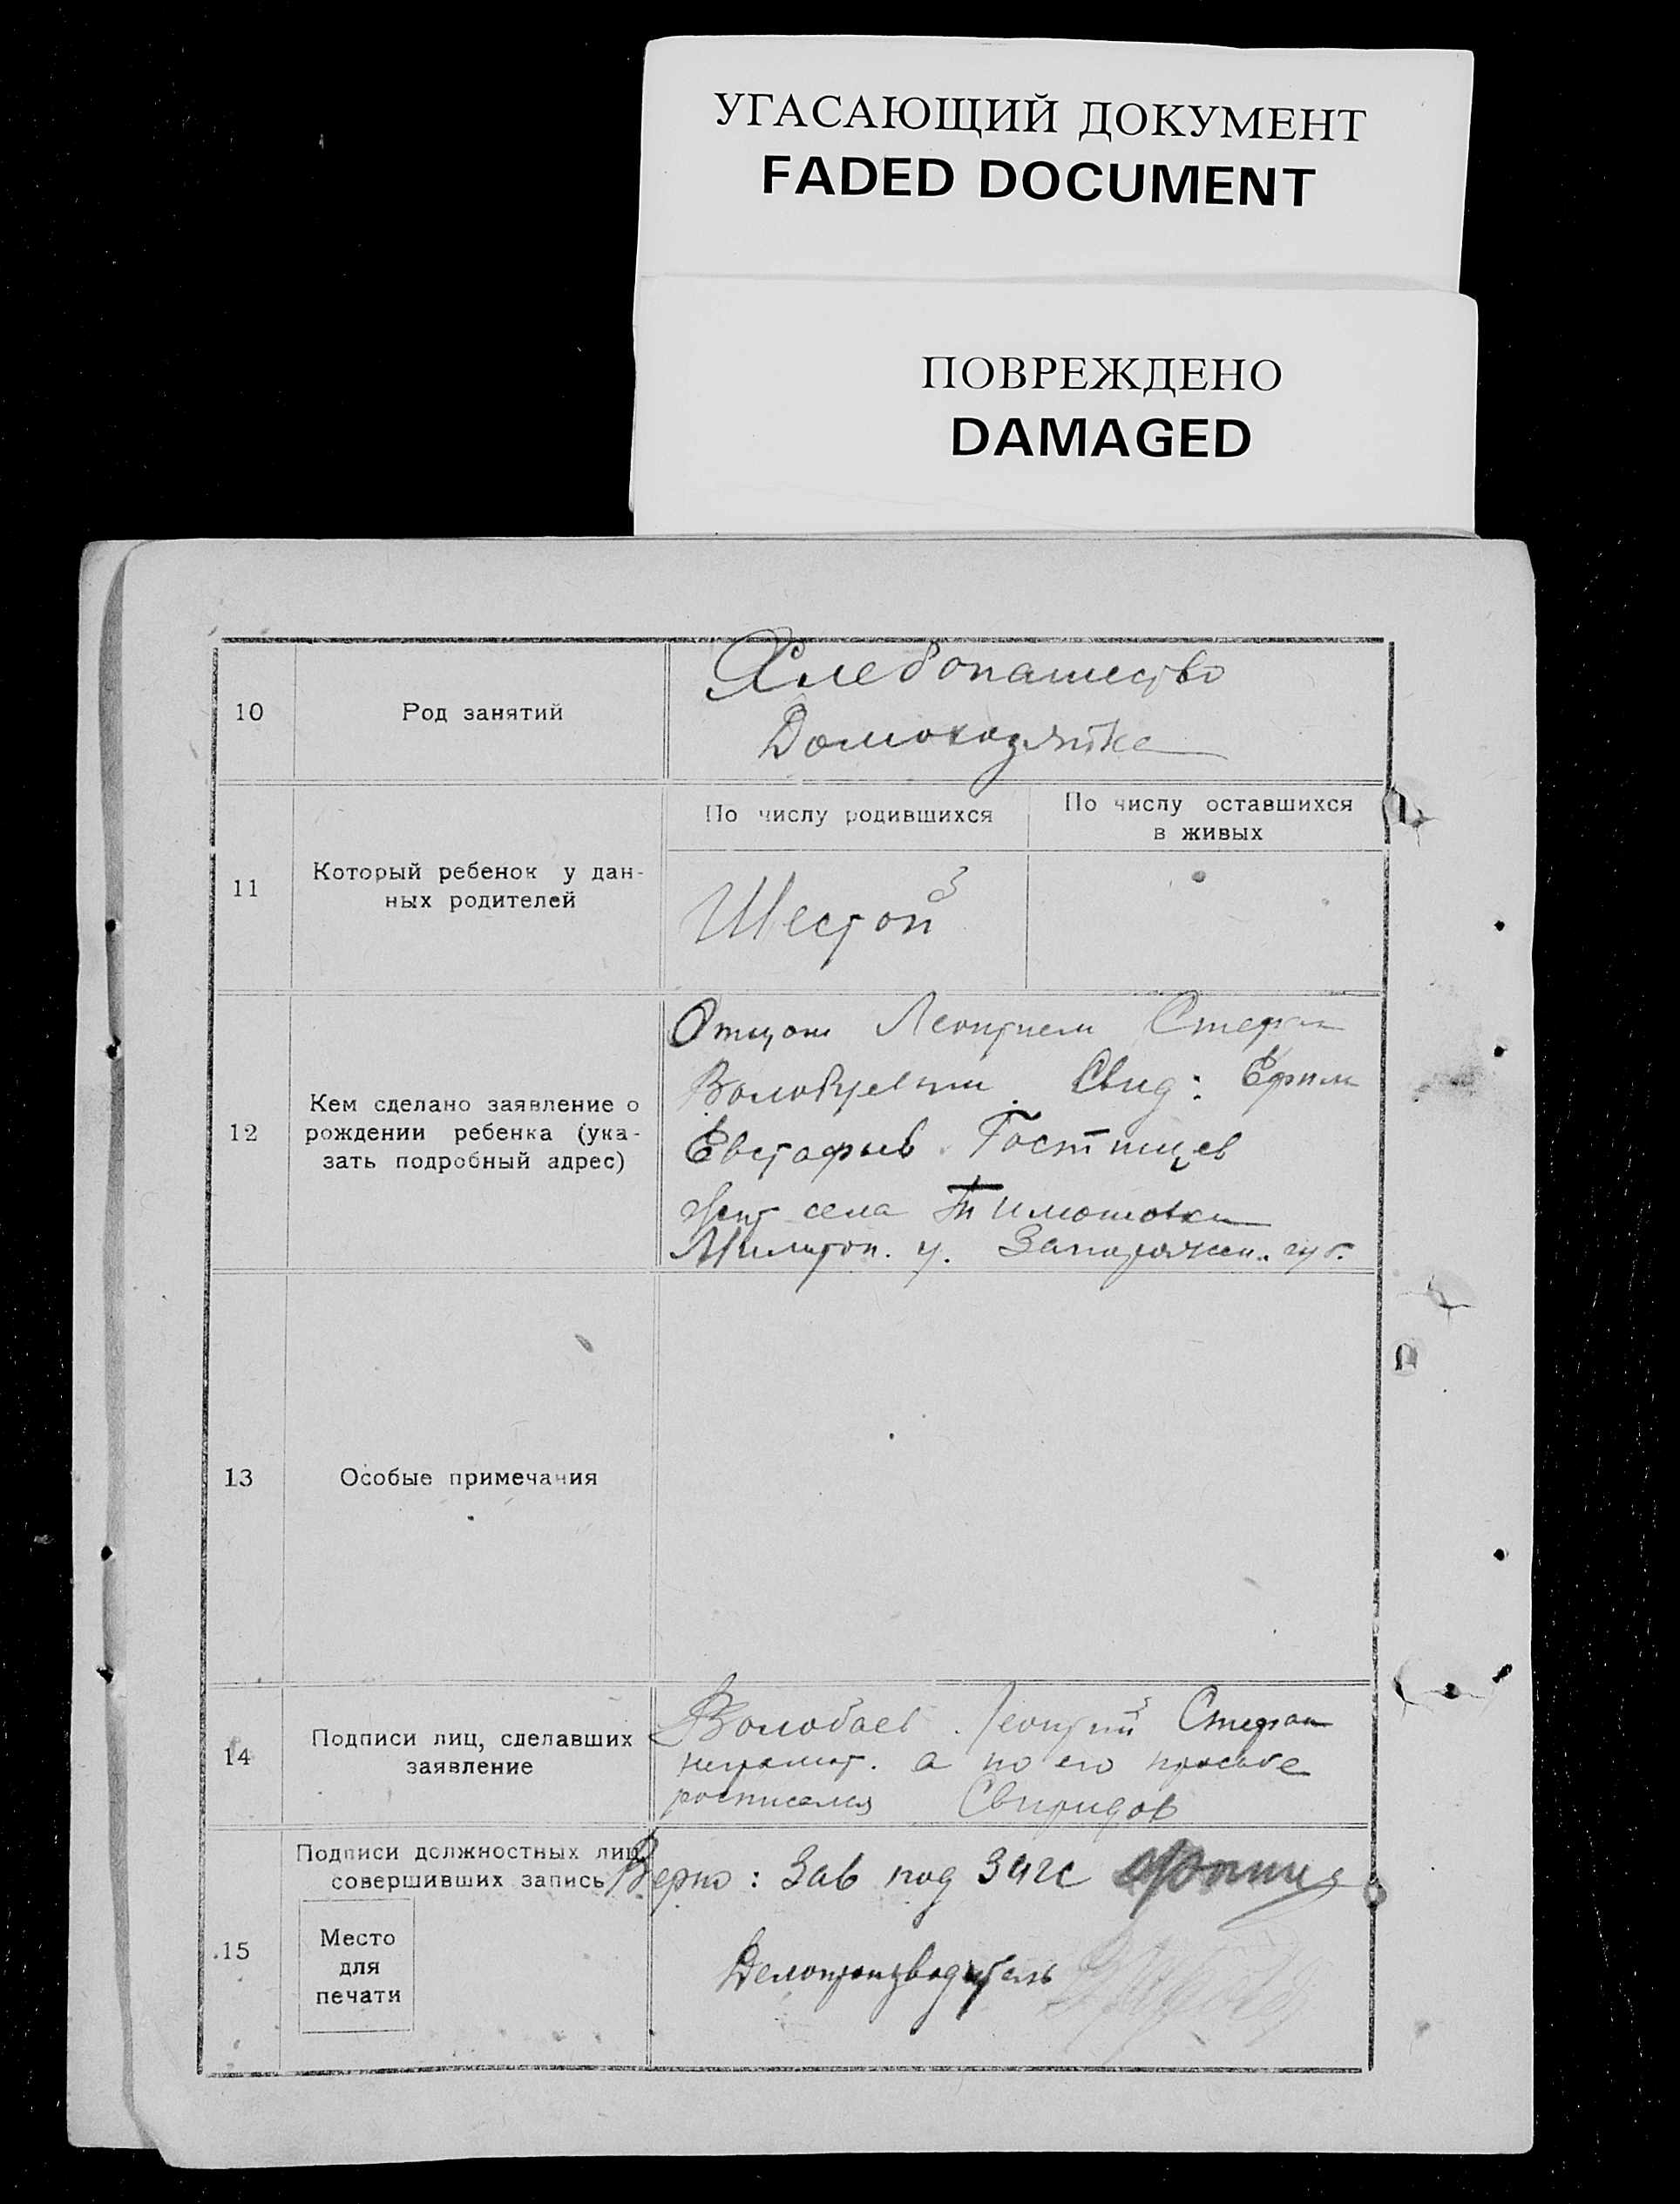 УГАСАЮЩИЙ ДОКУМЕНТ
FADED DOCUMENT
ПОВРЕЖДЕНО
DAMAGED
10
Род занятий
Хлебопашество
Домохозяйка
11
Который ребенок у дан-
ных родителей
По числу родившихся
Шестой
По числу оставшихся
в живых
12
Кем сделано заявление о
рождении ребенка (ука-
зать подробный адрес)
Отцом Леонтием Стефан
Свид: Ефим
Евстафьев Гостищев
села Тимошовки
у. Запорожск. губ.
13
Особые примечания
14
Подписи лиц, сделавших
заявление
Волобаев Леонтий Стефан
неграмот. а по его просьбе
росписался Свиридов
Подписи должностных лиц,
совершивших запись
Верно: Зав под ЗАГС
15
Место
для
печати
Делопроизводитель